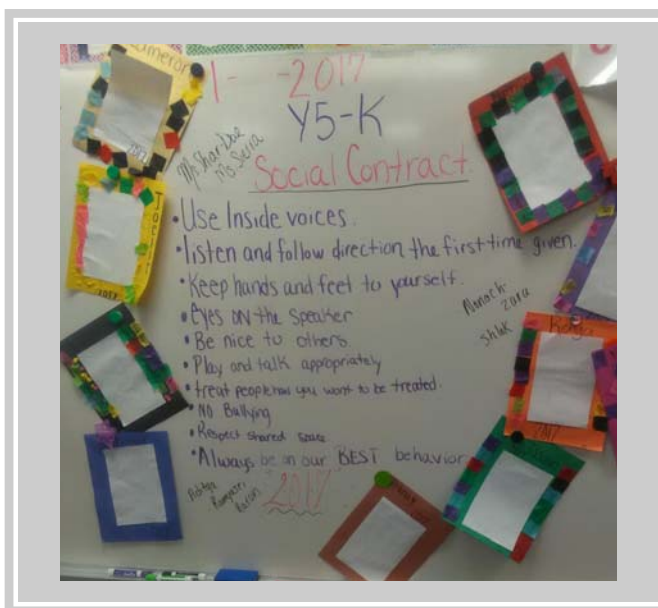 Cameron
1- -2017
Y5-K
Social Contract.
• Use Inside voices.
• listen and follow direction the first time given.
• Keep hands and feet to yourself.
• eyes on the speaker
• Be nice to others.
• Play and talk appropriately
• treat people how you want to be treated.
• NO Bullying
• Respect shared space
• Always be on our BEST behavior
2017
Aditya
2017
2017